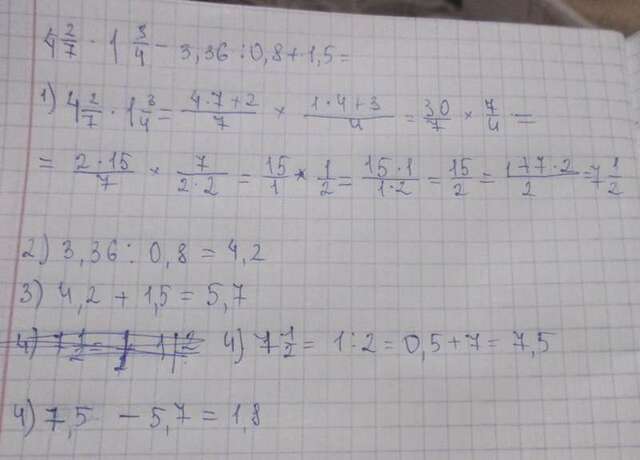 4 2/7 · 1 3/4 - 3,36 : 0,8 + 1,5 =
1) 4 2/7 · 1 3/4 = (4·7+2)/7 × (1·4+3)/4 = 30/7 × 7/4 =
= (2·15)/7 × 7/(2·2) = 15/1 × 1/2 = (15·1)/(1·2) = 15/2 = (1+7·2)/2 = 7 1/2
2) 3,36 : 0,8 = 4,2
3) 4,2 + 1,5 = 5,7
4) 7 1/2 = 1:2 = 0,5+7 = 7,5
4) 7,5 - 5,7 = 1,8